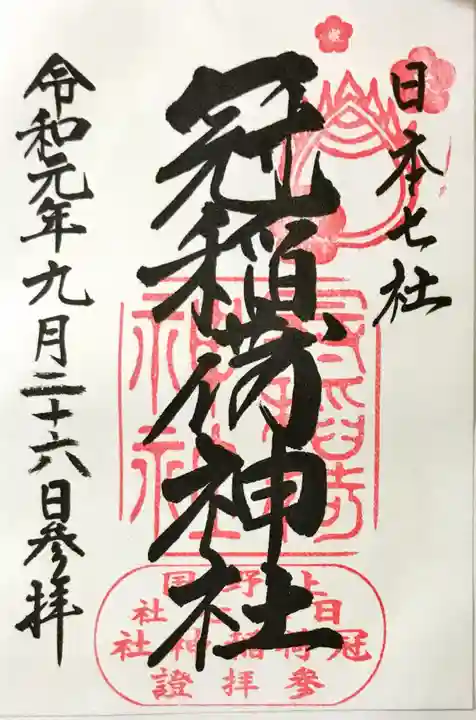 日本七社
冠稲荷神社
令和元年九月二十六日参拝
冠稲荷神社
上野国
日
社
冠稲荷神社
參拜證